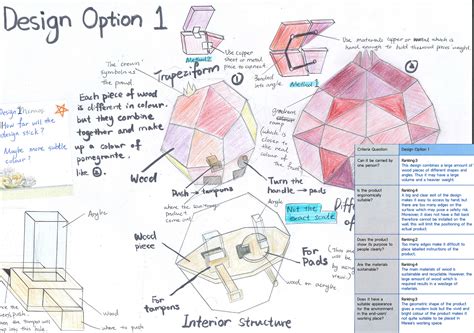 Design Option 1
The crown
symbolises
the proud
Method 2
Use copper
sheet or metal
piece to connect
Use materials copper or wood which is
hard enough to build
Method 1
Banded into
angle
Trapeziform
Each piece of wood
is different in colour.
but they combine
together and make
up a colour of
pomegrante.
like
Design
How far will the
design stick?
Maybe more subtle
colour?
Wood
Push → tampons
Turn the
handle → pads
Angle
Not the
exact scale
Wood
piece
For
tampons
For
Pads
Angle
Interior structure
Criteria Question
Design Option 1
Can it be carried by
one person?
Ranking:3
This design combines a large amount of
wood pieces of different shapes and
angles. Thus it may have a large
volume and a heavier weight.
Is the product
ergonomically
suitable?
Ranking:4
A big and clear exit of the design
makes it easy to access by hand, but
there are too many edges on the
surface which may pose a safety risk.
Moreover, it does not have a flat back
therefore cannot be installed on the
wall, this will limit the positioning of the
actual product.
Does the product
show its purpose to
people clearly?
Ranking:2
Too many edges make it difficult to
place labelling/instructions.
Are the materials
sustainable?
Ranking:4
The main materials of wood is
sustainable and reasonable. However,
the design requires a large amount of
materials, and it may cause a
wastage of materials.
Does it have a
suitable appearance
for the environment
in the end-users'
working place?
Ranking:3
The geometric shape of the product
gives a modern look but the world
bright colour of the product makes it
not quite suitable to be placed in